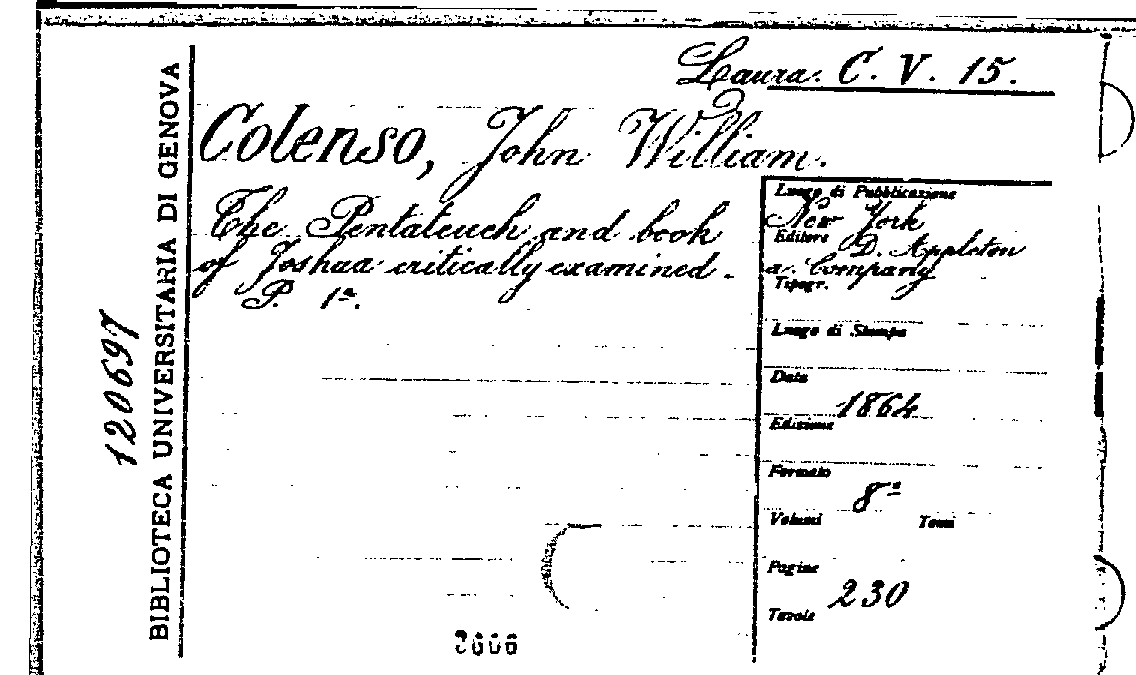 Laura. C. V. 15.
Colenso, John William.
The Pentateuch and book
of Joshua critically examined.
P. 1ª.
Luogo di Pubblicazione
New York
Editore D. Appleton
a. Company
Tipogr.
Luogo di Stampa
Data
1864
Edizione
Formato
8º
Volumi Tomi
Pagine
230
Tavole
BIBLIOTECA UNIVERSITARIA DI GENOVA
120697